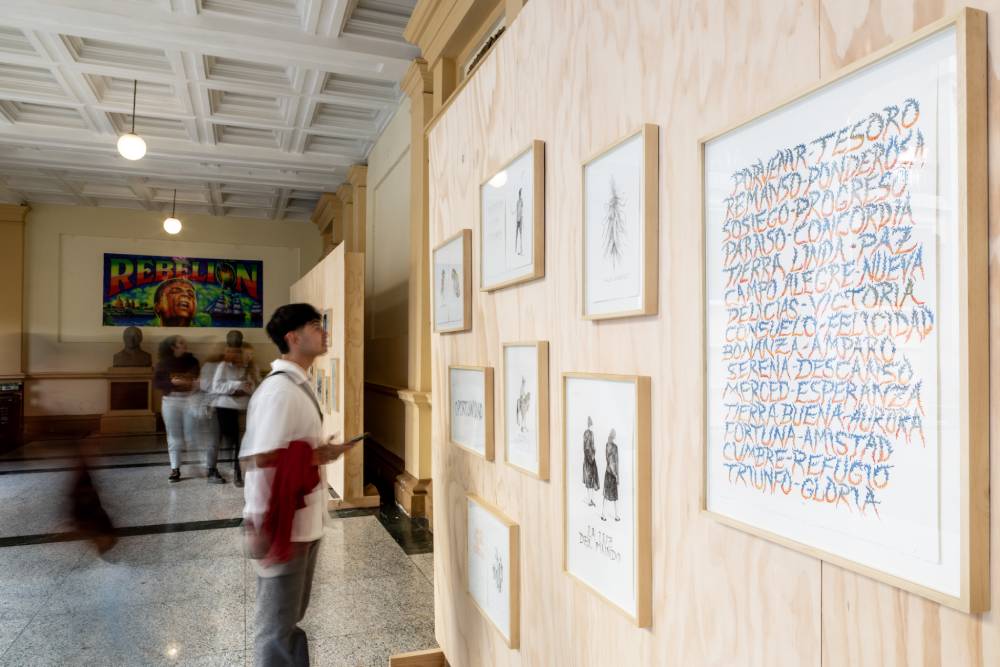 REBELION
OPORTUNO
LA LUZ
DEL MUNDO
PORVENIR·TESORO
REMANSO·PONDEROSA
SOSIEGO·PROGRESO
PARAISO·CONCORDIA
TIERRA LINDA·PAZ
CAMPO ALEGRE·NUEVA
DELICIAS·VICTORIA
CONSUELO·FELICIDAD
BONANZA·AMPARO
SERENA·DESCANSO
MERCED·ESPERANZA
TIERRA BUENA·AURORA
FORTUNA·AMISTAD
CUMBRE·REFUGIO
TRIUNFO·GLORIA